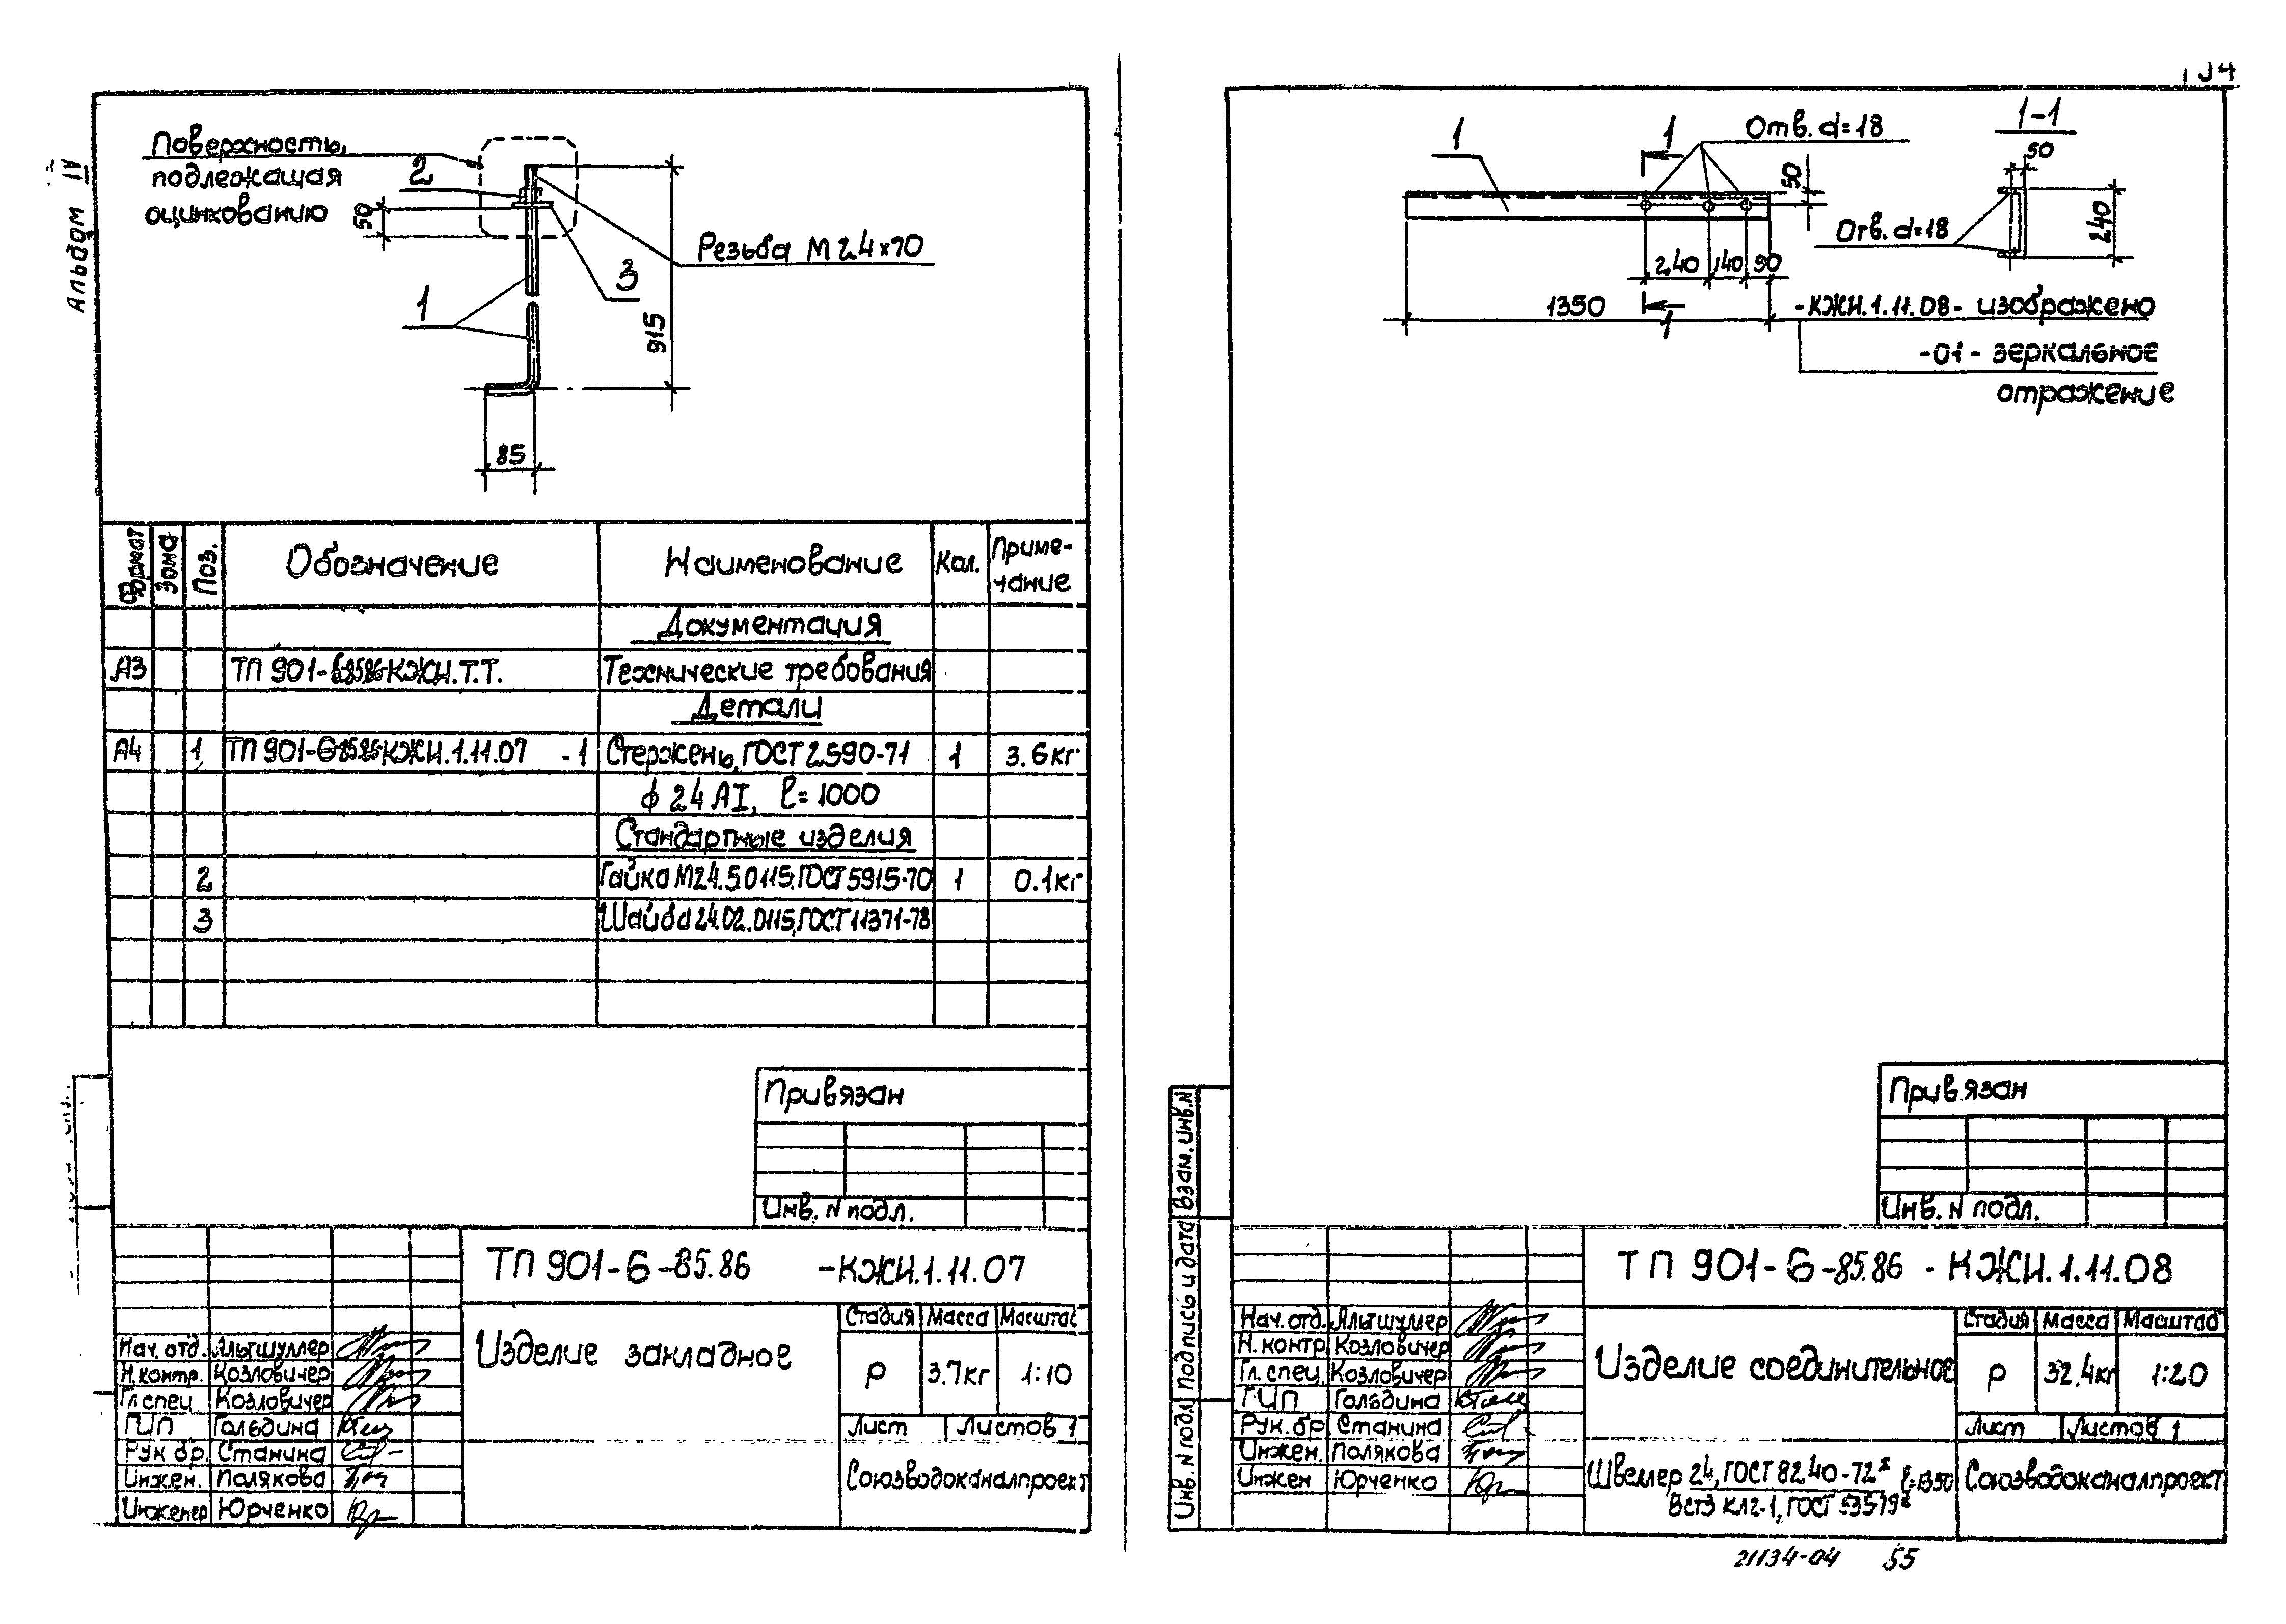 Альбом IV
Поверхность,
подлежащая
оцинкованию
2
50
Резьба М24×70
3
1
915
85
Формат
Зона
Поз.
Обозначение
Наименование
Кол.
Приме-
чание
Документация
А3 ТП 901-6-85.86-КЖИ.Т.Т. Технические требования
Детали
А4 1 ТП 901-6-85.86-КЖИ.1.11.07 -1 Стержень, ГОСТ 2590-71 1 3.6кг
ф 24 АI, ℓ=1000
Стандартные изделия
2 Гайка М24.5.0115, ГОСТ 5915-70 1 0.1кг
3 Шайба 24.02.0115, ГОСТ 11371-78
Привязан
Инв. N подл.
ТП 901-6-85.86 -КЖИ.1.11.07
Изделие закладное
Стадия Масса Масштаб
Р 3.7кг 1:10
Лист Листов 1
Союзводоканалпроект
Нач. отд. Альтшуллер
Н. контр. Козловичер
Гл. спец. Козловичер
ГИП Гольдина
Рук бр. Станина
Инжен. Полякова
Инженер Юрченко
1
1
Отв. d=18
1-1
50
50
Отв. d=18
240
240 140 90
1350
1
-КЖИ.1.11.08- изображено
-01- зеркальное
отражение
Привязан
Инв. N подл.
Взам. инв. N
Подпись и дата
Инв. N подл
ТП 901-6-85.86 - КЖИ.1.11.08
Изделие соединительное
Стадия Масса Масштаб
Р 32.4кг 1:20
Лист Листов 1
Швеллер 24, ГОСТ 8240-72* ℓ=1350
ВСт3 кп2-1, ГОСТ 535-79*
Союзводоканалпроект
Нач. отд. Альтшуллер
Н. контр Козловичер
Гл. спец. Козловичер
ГИП Гольдина
Рук. бр Станина
Инжен. Полякова
Инжен Юрченко
21134-04 55